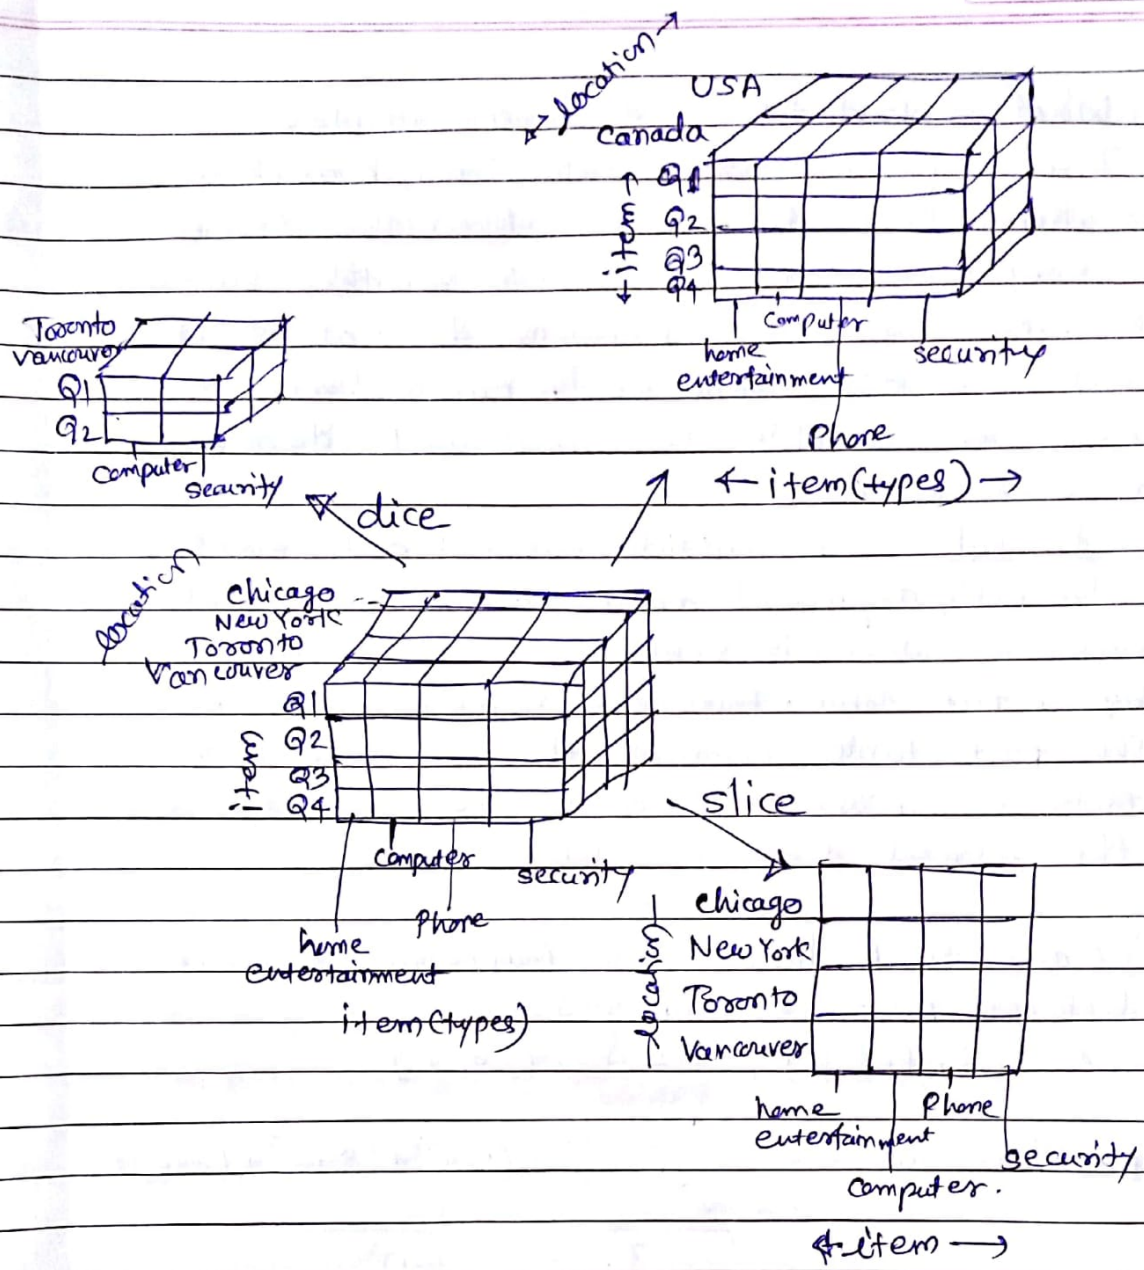 location
USA
Canada
Q1
Q2
Q3
Q4
item
Computer
home
entertainment
security
Phone
item(types)
Toronto
Vancouver
Q1
Q2
Computer
security
dice
location
Chicago
New York
Toronto
Vancouver
Q1
Q2
Q3
Q4
item
Computer
security
Phone
home
entertainment
item(types)
slice
Chicago
New York
Toronto
Vancouver
location
home
entertainment
Phone
security
Computer.
item